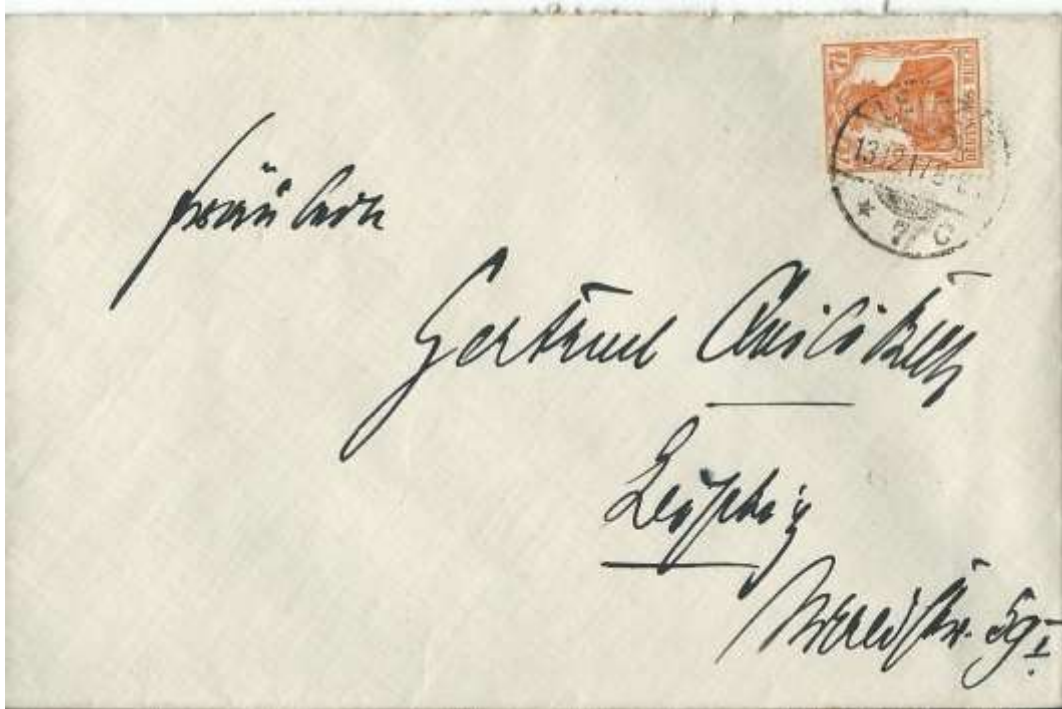 7½
DEUTSCHES REICH
7½
13.12.17.
* 7 C
Fräulein
Gertrud
Leipzig
Waldstr. 59 I